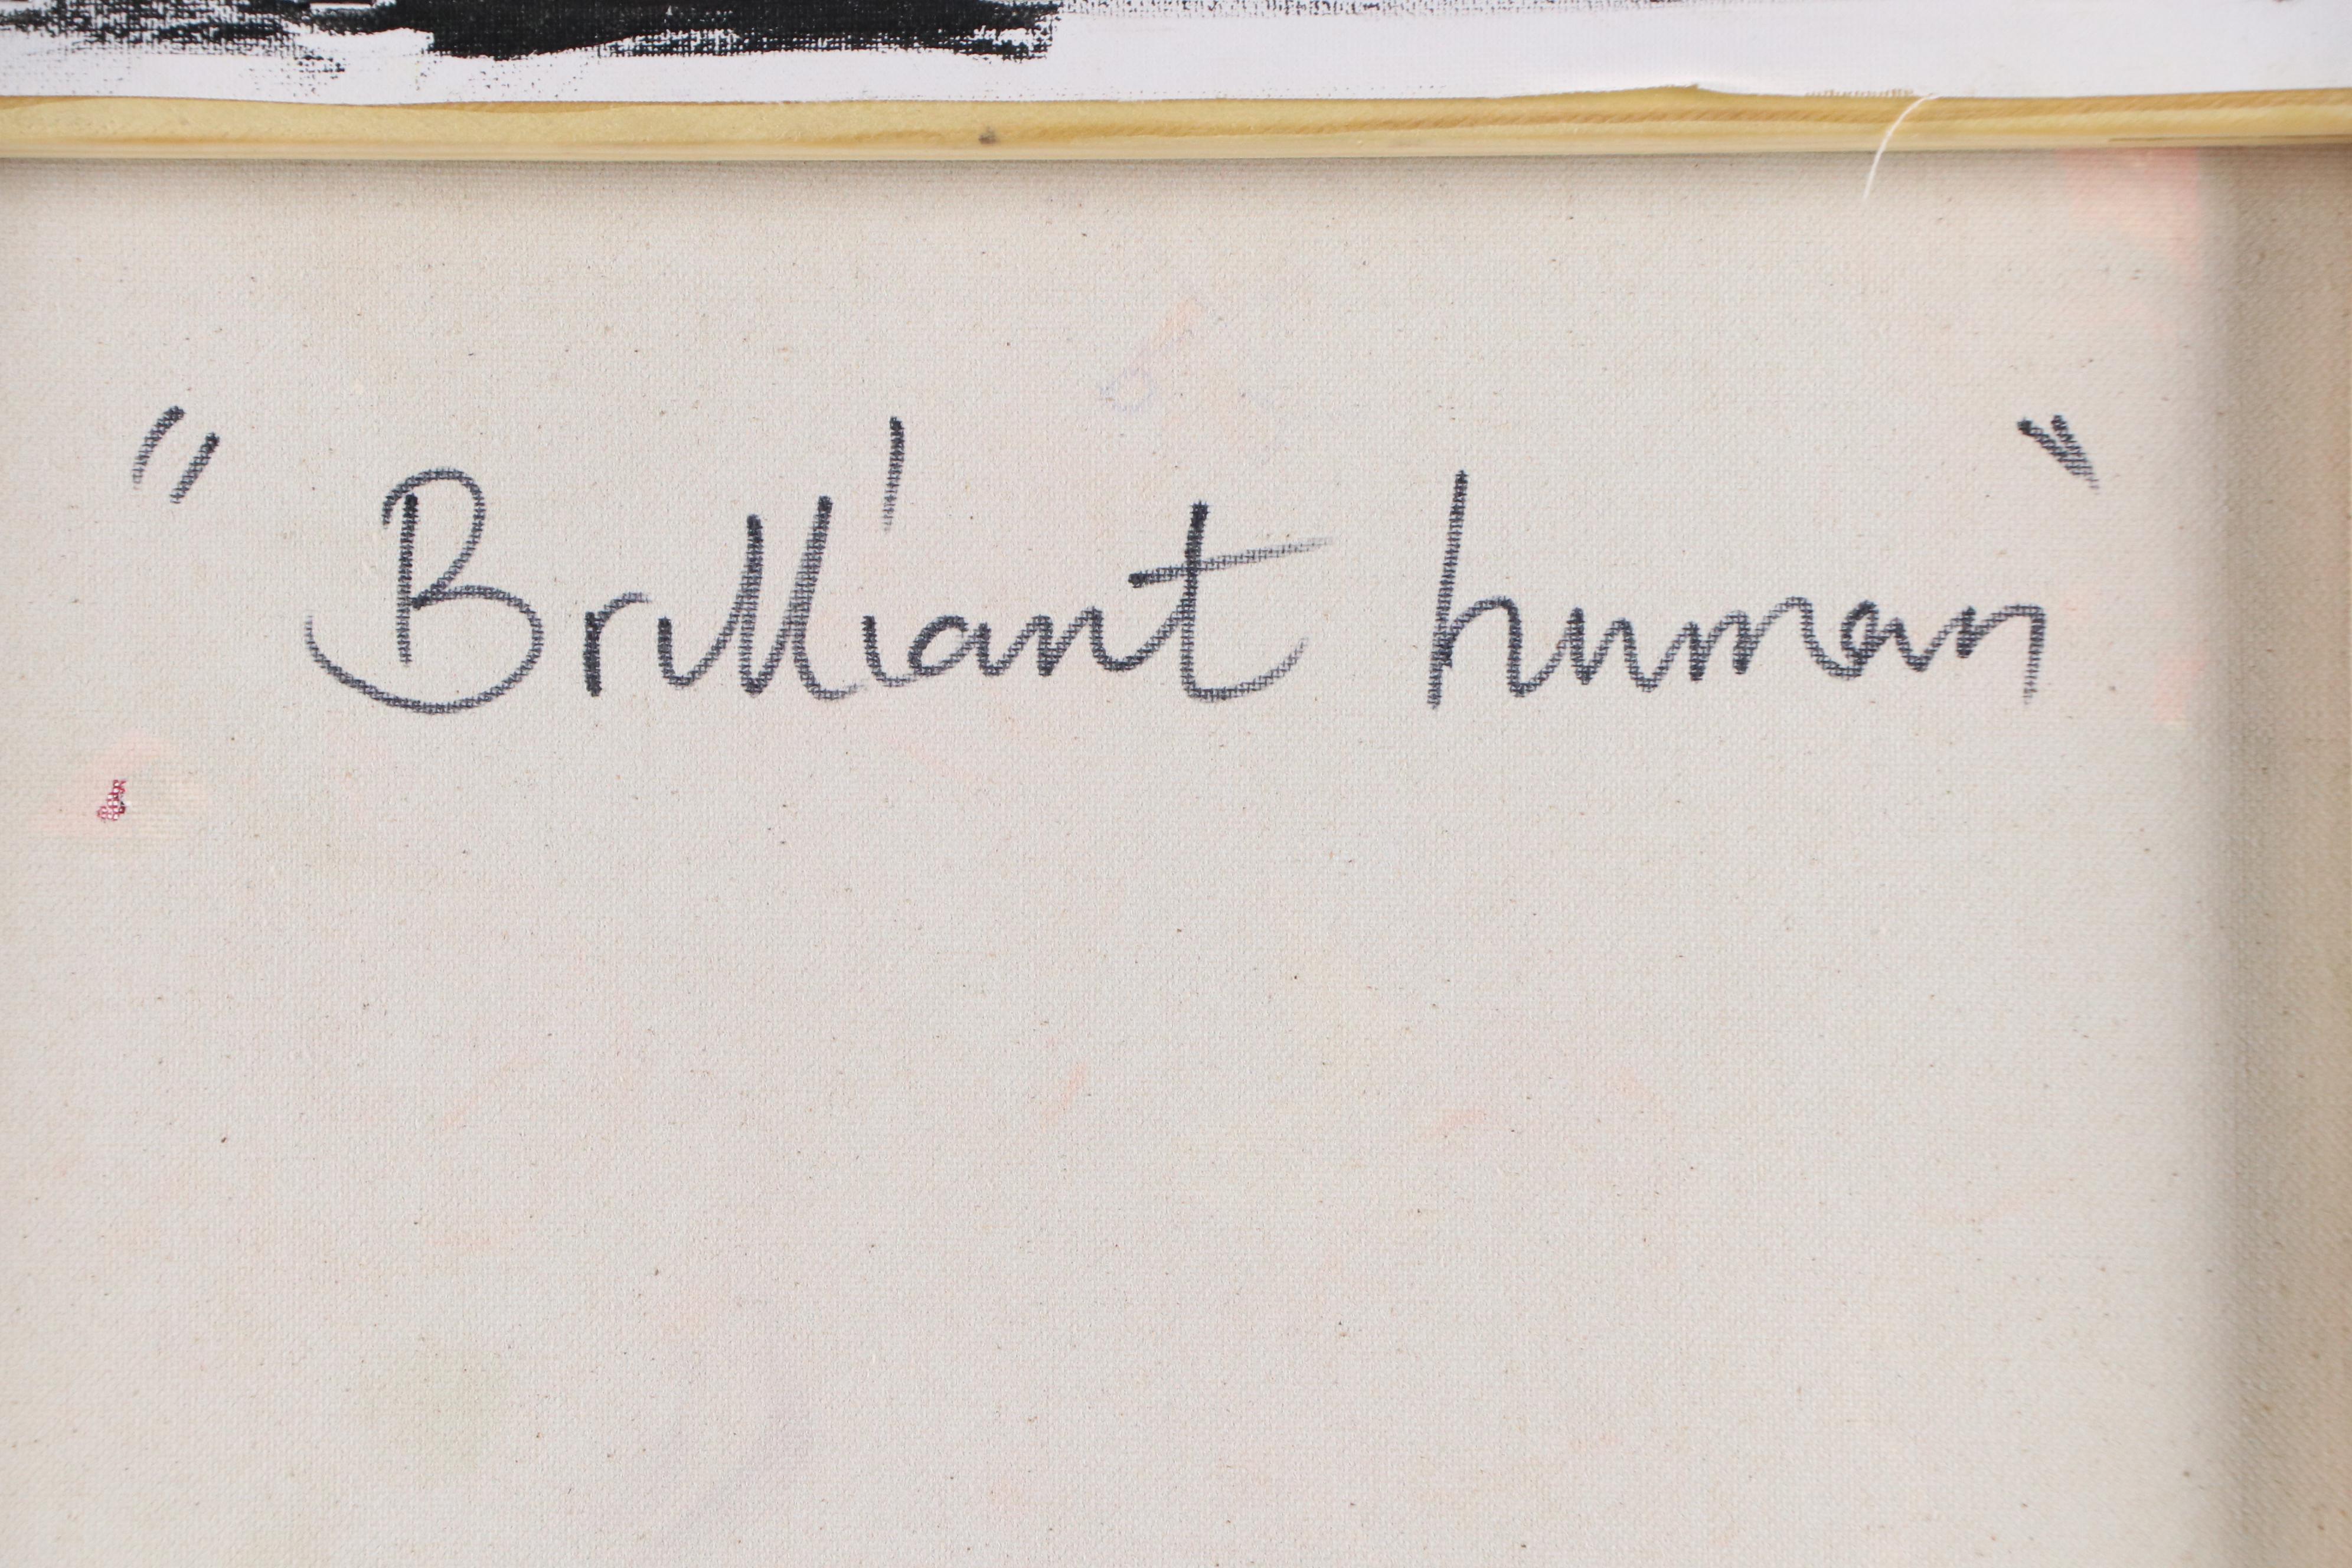 "Brilliant human"